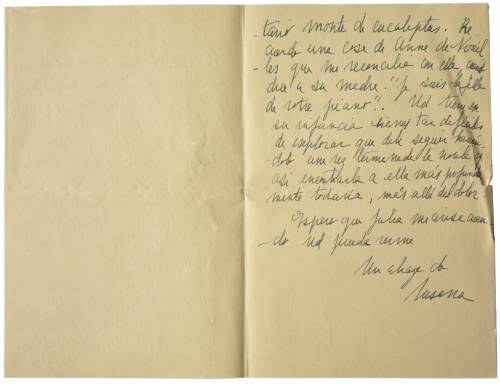 tario monte de eucaliptus. Re
cuerdo una cosa de Anne de Noail
les que me reconcilia con ella, cuando
dice a su madre: "Je suis la fille
de votre piano". Ud tiene en
su infancia bienes tan difíciles
de explorar que debe seguir hacien
dolo una vez terminada la novela y
así encontrarla a ella más profunda
mente todavía, más allá del dolor
Espero que Julia me avise cuan
do Ud pueda verme
Un abrazo de
Susana